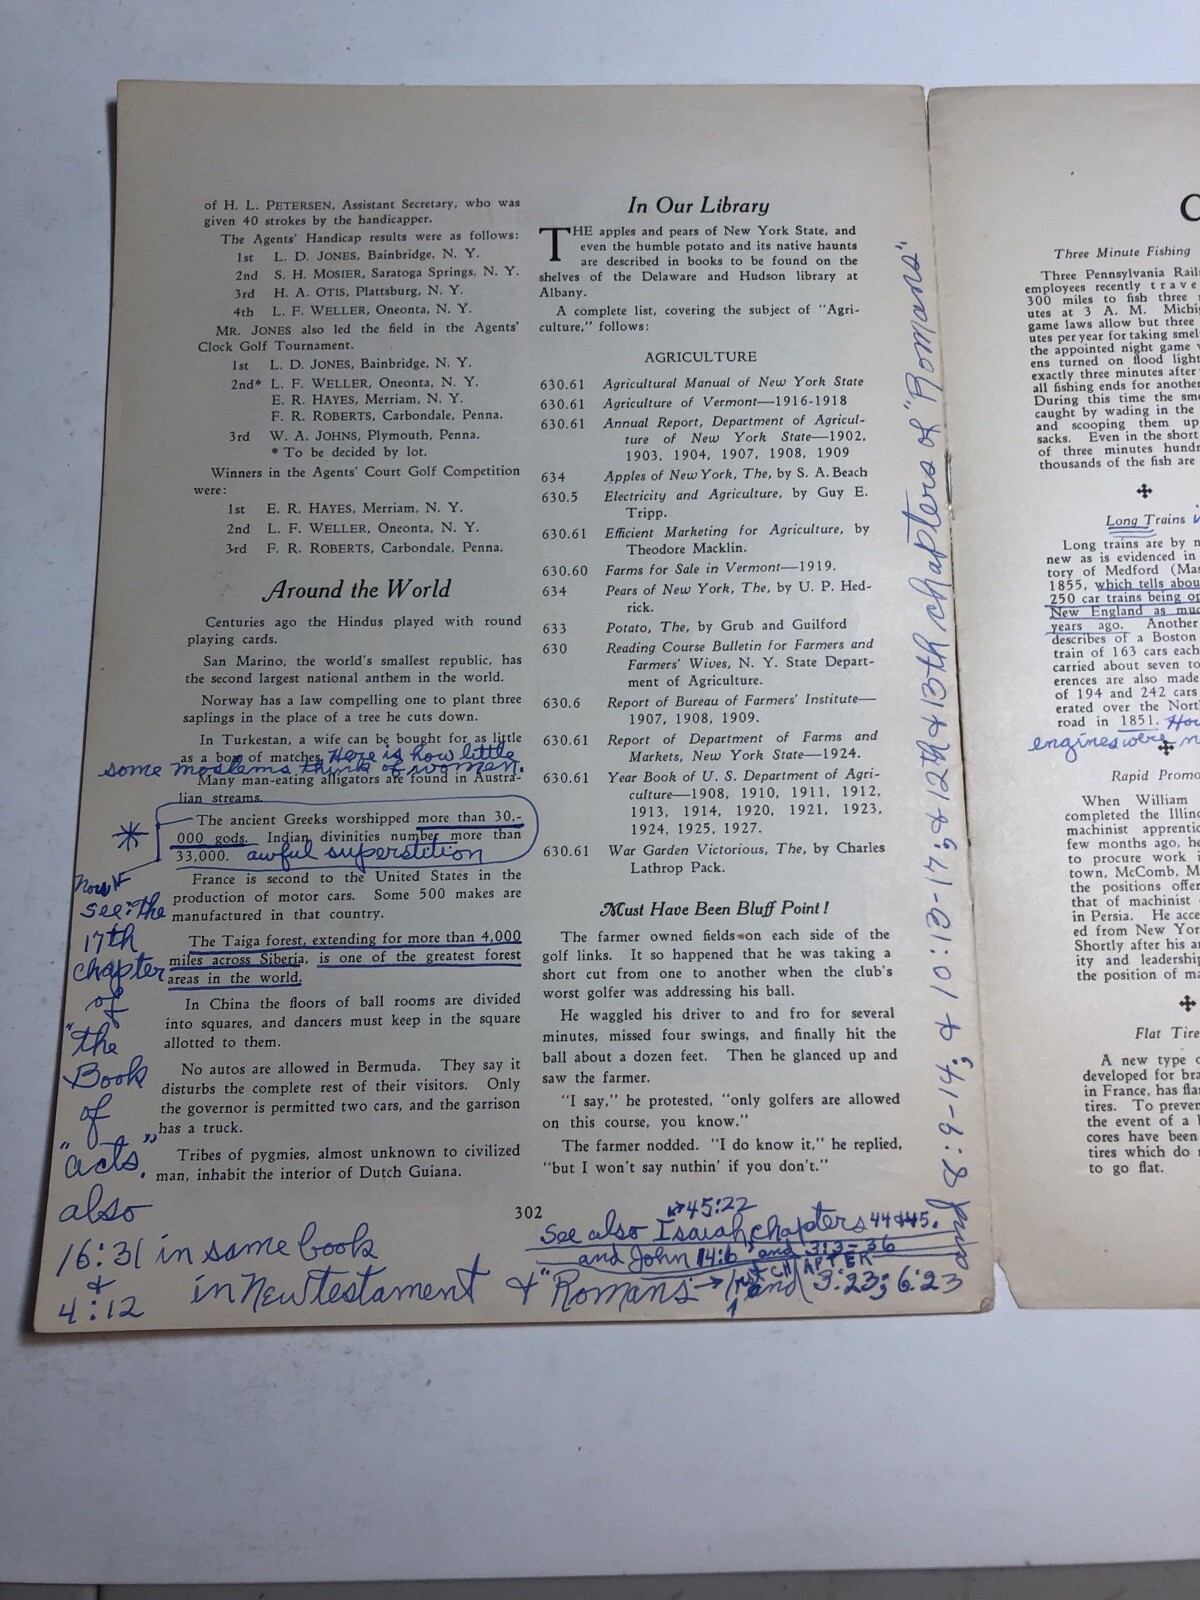 of H. L. PETERSEN, Assistant Secretary, who was
given 40 strokes by the handicapper.
The Agents' Handicap results were as follows:
1st L. D. JONES, Bainbridge, N. Y.
2nd S. H. MOSIER, Saratoga Springs, N. Y.
3rd H. A. OTIS, Plattsburg, N. Y.
4th L. F. WELLER, Oneonta, N. Y.
MR. JONES also led the field in the Agents'
Clock Golf Tournament.
1st L. D. JONES, Bainbridge, N. Y.
2nd* L. F. WELLER, Oneonta, N. Y.
E. R. HAYES, Merriam, N. Y.
F. R. ROBERTS, Carbondale, Penna.
3rd W. A. JOHNS, Plymouth, Penna.
* To be decided by lot.
Winners in the Agents' Court Golf Competition
were:
1st E. R. HAYES, Merriam, N. Y.
2nd L. F. WELLER, Oneonta, N. Y.
3rd F. R. ROBERTS, Carbondale, Penna.
Around the World
Centuries ago the Hindus played with round
playing cards.
San Marino, the world's smallest republic, has
the second largest national anthem in the world.
Norway has a law compelling one to plant three
saplings in the place of a tree he cuts down.
In Turkestan, a wife can be bought for as little
as a box of matches. Here is how little
some moslems think of women.
Many man-eating alligators are found in Austra-
lian streams.
The ancient Greeks worshipped more than 30,-
000 gods. Indian divinities number more than
33,000. awful superstition
France is second to the United States in the
production of motor cars. Some 500 makes are
manufactured in that country.
The Taiga forest, extending for more than 4,000
miles across Siberia, is one of the greatest forest
areas in the world.
In China the floors of ball rooms are divided
into squares, and dancers must keep in the square
allotted to them.
No autos are allowed in Bermuda. They say it
disturbs the complete rest of their visitors. Only
the governor is permitted two cars, and the garrison
has a truck.
Tribes of pygmies, almost unknown to civilized
man, inhabit the interior of Dutch Guiana.
see: the
17th
chapter
of
"the
Book
of
"acts."
also
16:31 in same book
&
4:12
in New testament & "Romans" → 1st CHAPTER and 3:23; 6:23
and 8:9-14; & 10:13-17; & 12th & 13th chapters of "Romans"
In Our Library
THE apples and pears of New York State, and
even the humble potato and its native haunts
are described in books to be found on the
shelves of the Delaware and Hudson library at
Albany.
A complete list, covering the subject of "Agri-
culture," follows:
AGRICULTURE
630.61 Agricultural Manual of New York State
630.61 Agriculture of Vermont—1916-1918
630.61 Annual Report, Department of Agricul-
ture of New York State—1902,
1903, 1904, 1907, 1908, 1909
634 Apples of New York, The, by S. A. Beach
630.5 Electricity and Agriculture, by Guy E.
Tripp.
630.61 Efficient Marketing for Agriculture, by
Theodore Macklin.
630.60 Farms for Sale in Vermont—1919.
634 Pears of New York, The, by U. P. Hed-
rick.
633 Potato, The, by Grub and Guilford
630 Reading Course Bulletin for Farmers and
Farmers' Wives, N. Y. State Depart-
ment of Agriculture.
630.6 Report of Bureau of Farmers' Institute—
1907, 1908, 1909.
630.61 Report of Department of Farms and
Markets, New York State—1924.
630.61 Year Book of U. S. Department of Agri-
culture—1908, 1910, 1911, 1912,
1913, 1914, 1920, 1921, 1923,
1924, 1925, 1927.
630.61 War Garden Victorious, The, by Charles
Lathrop Pack.
Must Have Been Bluff Point!
The farmer owned fields on each side of the
golf links. It so happened that he was taking a
short cut from one to another when the club's
worst golfer was addressing his ball.
He waggled his driver to and fro for several
minutes, missed four swings, and finally hit the
ball about a dozen feet. Then he glanced up and
saw the farmer.
"I say," he protested, "only golfers are allowed
on this course, you know."
The farmer nodded. "I do know it," he replied,
"but I won't say nuthin' if you don't."
302
45:22
See also Isaiah, chapters 44 & 45.
and John 14:6 and 3:3-36
Three Minute Fishing
Three Pennsylvania Rail
employees recently trave
300 miles to fish three
utes at 3 A. M. Michi
game laws allow but three
utes per year for taking smel
the appointed night game
ens turned on flood light
exactly three minutes after
all fishing ends for another
During this time the sme
caught by wading in the
and scooping them up
sacks. Even in the short
of three minutes hund
thousands of the fish are
Long Trains
Long trains are by n
new as is evidenced in
tory of Medford (Mas
1855, which tells abou
250 car trains being op
New England as muc
years ago. Another
describes of a Boston
train of 163 cars each
carried about seven to
erences are also made
of 194 and 242 cars
erated over the North
road in 1851. How
engines were
Rapid Promo
When William
completed the Illin
machinist apprenti
few months ago, he
to procure work i
town, McComb, M
the positions offer
that of machinist
in Persia. He acce
ed from New York
Shortly after his ar
ity and leadership
the position of ma
Flat Tire
A new type o
developed for bra
in France, has flan
tires. To preven
the event of a b
cores have been
tires which do n
to go flat.